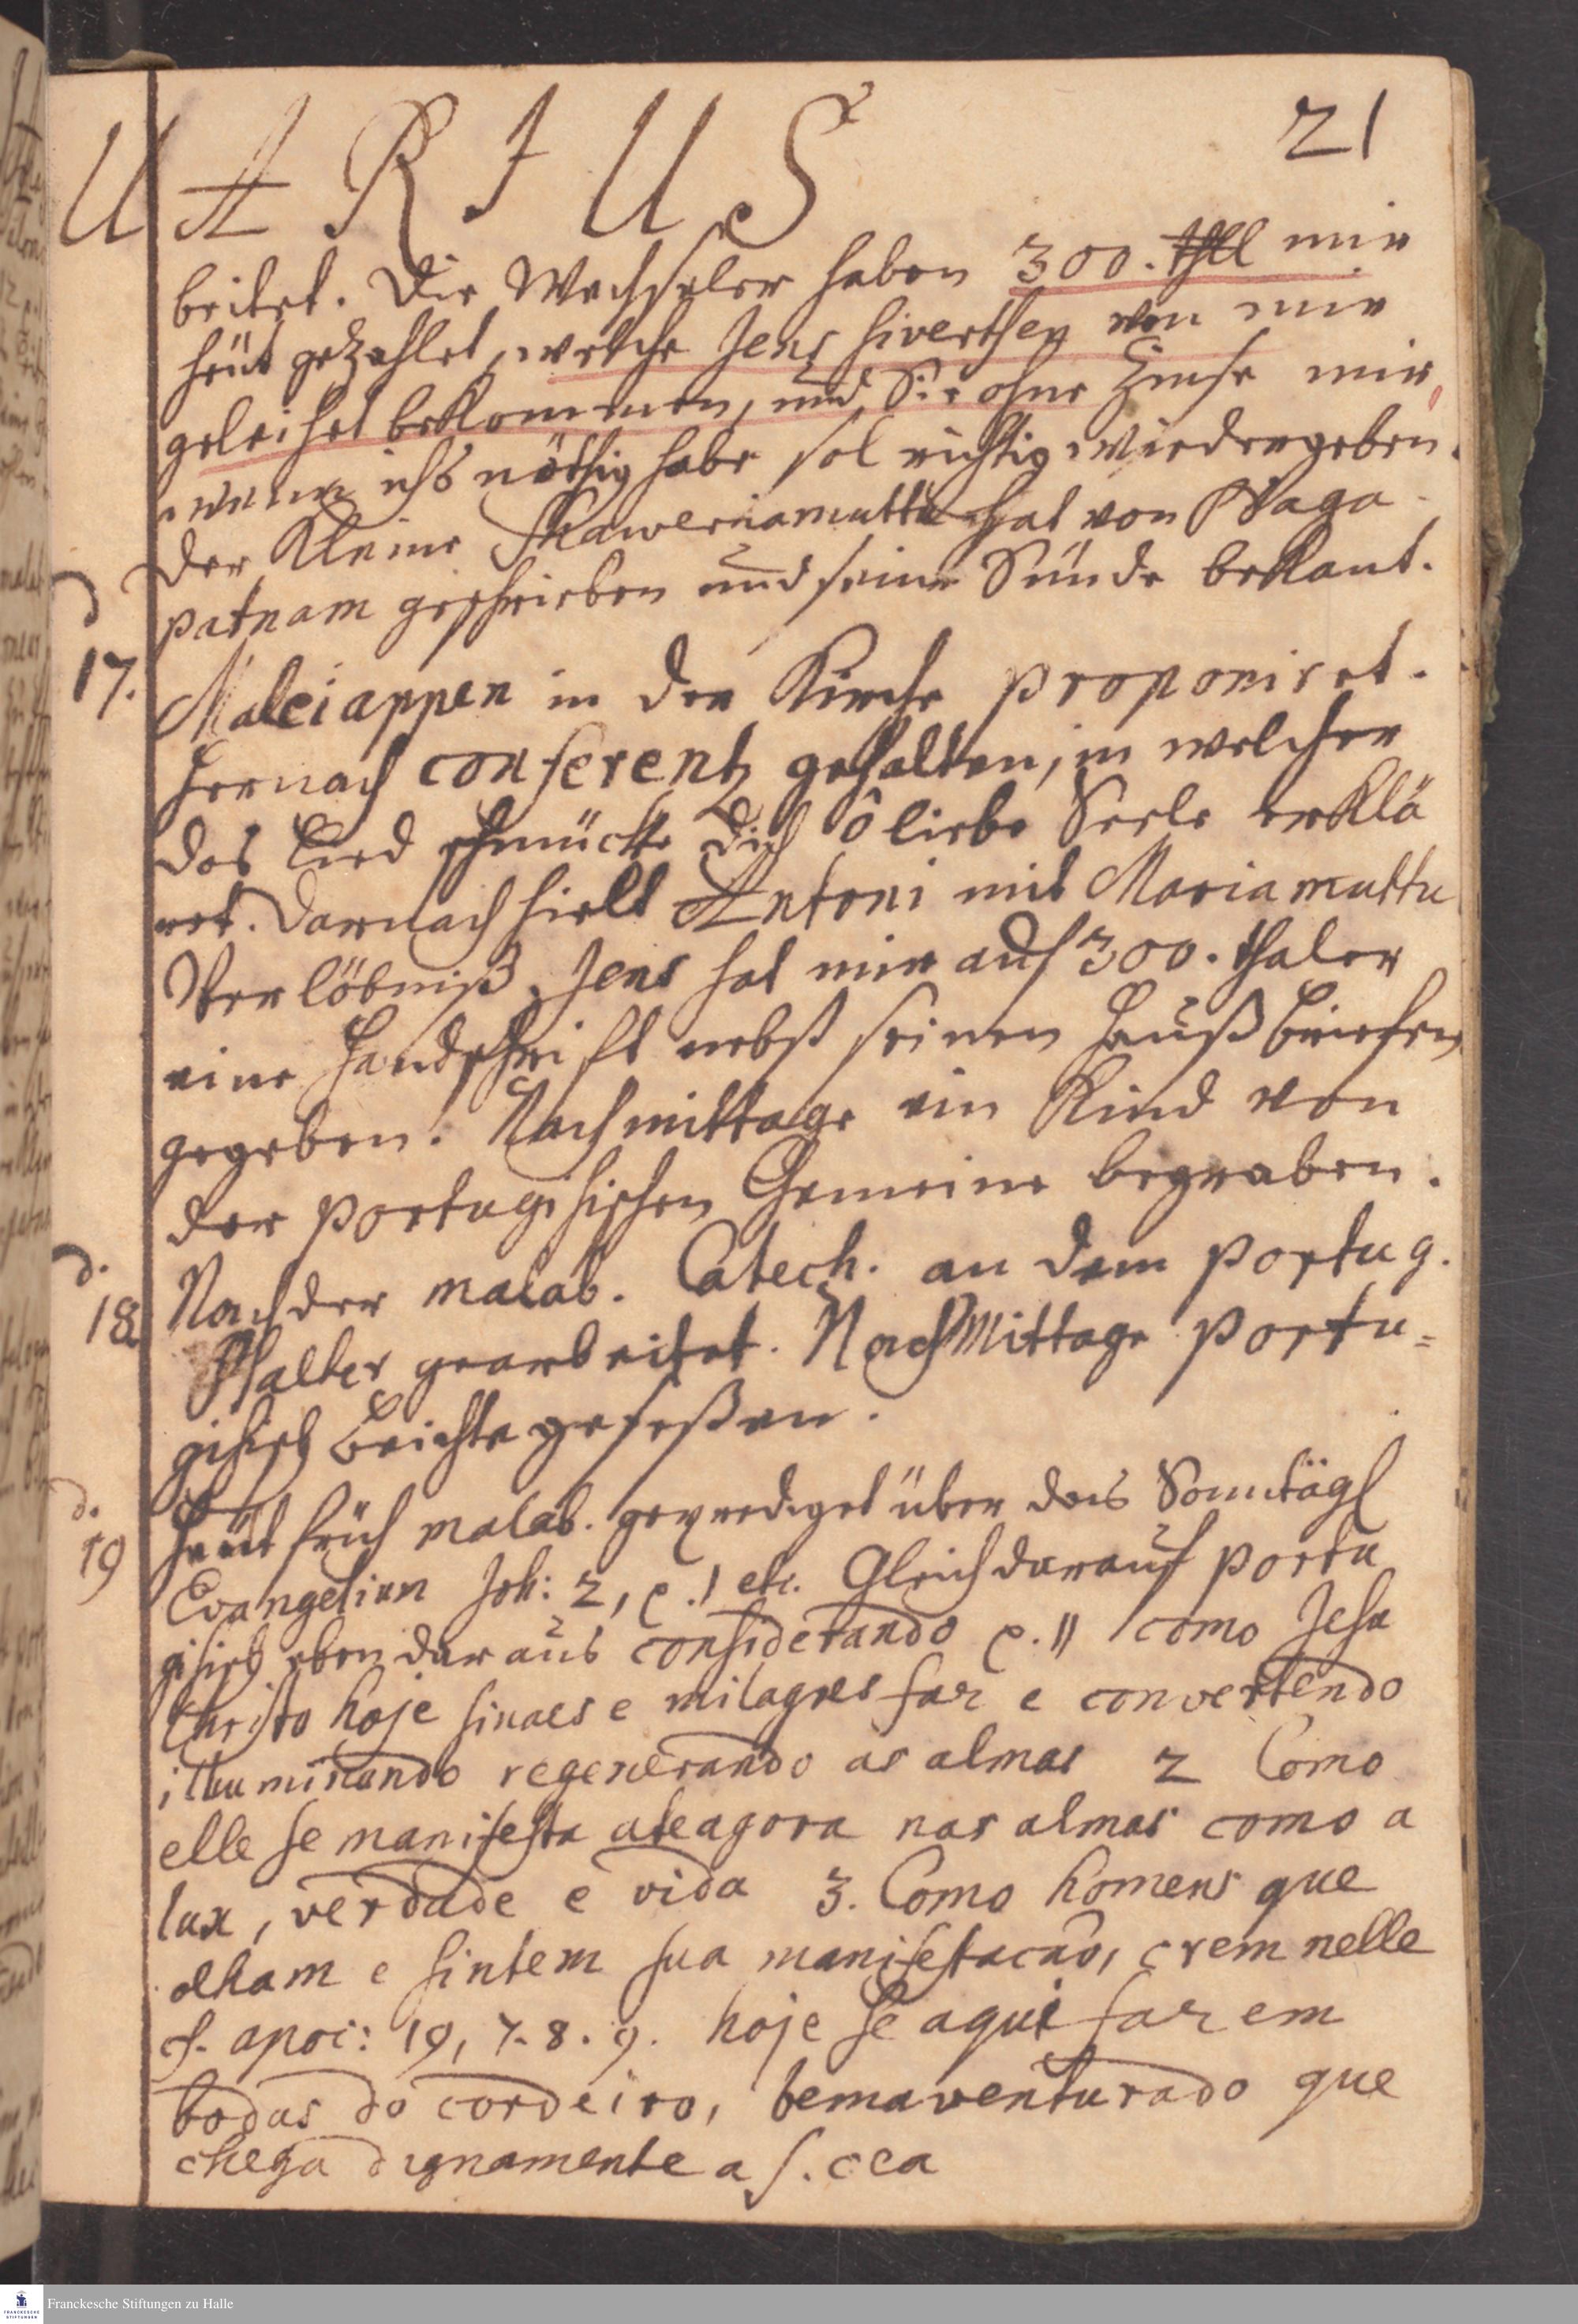 21
U A R I U S
beitet. Die Wechseler haben 300. thll mir
heüt gezahlet, welche Jens Siverthsen von mir
geleihet bekommen, und Sie ohne Zinse mir,
wenn ichs nöthig habe sol richtig wiedergeben.
Der Kleine Schaweriamuttu hat von Naga
patnam geschrieben und seine Sünde bekant.
d
17.
Maleiappen in der Kirche proponiret.
Hernach conferentz gehalten, in welcher
das Lied schmücke dich ô liebe Seele erklä
ret. Darnach hielt Antoni mit Mariamuttu
Verlöbniß. Jens hat mir auf 300. thaler
eine Handschrifft nebst seinen Hauß briefen
gegeben. Nachmittage ein Kind von
der Portugisischen Gemeine begraben.
d.
18
Nach der malab. Catech. an dem Portug.
Psalter gearbeitet. NachMittage Portu-
gisisch beichte geseßen.
d.
19
Heüt früh malab. geprediget über das Sonntägl
Evangelium Joh: 2, v. 1 etc. Gleich darauf Portu
gisisch eben daraus considerando v. 11 como Jesu
Christo hoje sinaes e milagres faz e convertendo
illuminando regenerando as almas 2 Como
elle se manifesta ateagora nas almas como a
lux, verdade e vida 3. Como homens que
olham e sintem sua manifestacaõ, crem nelle
cf. apoc: 19, 7. 8. 9. hoje se aqui fazem
bodas do cordeiro, bemaventurado que
chega dignamente a S. cea
Franckesche Stiftungen zu Halle